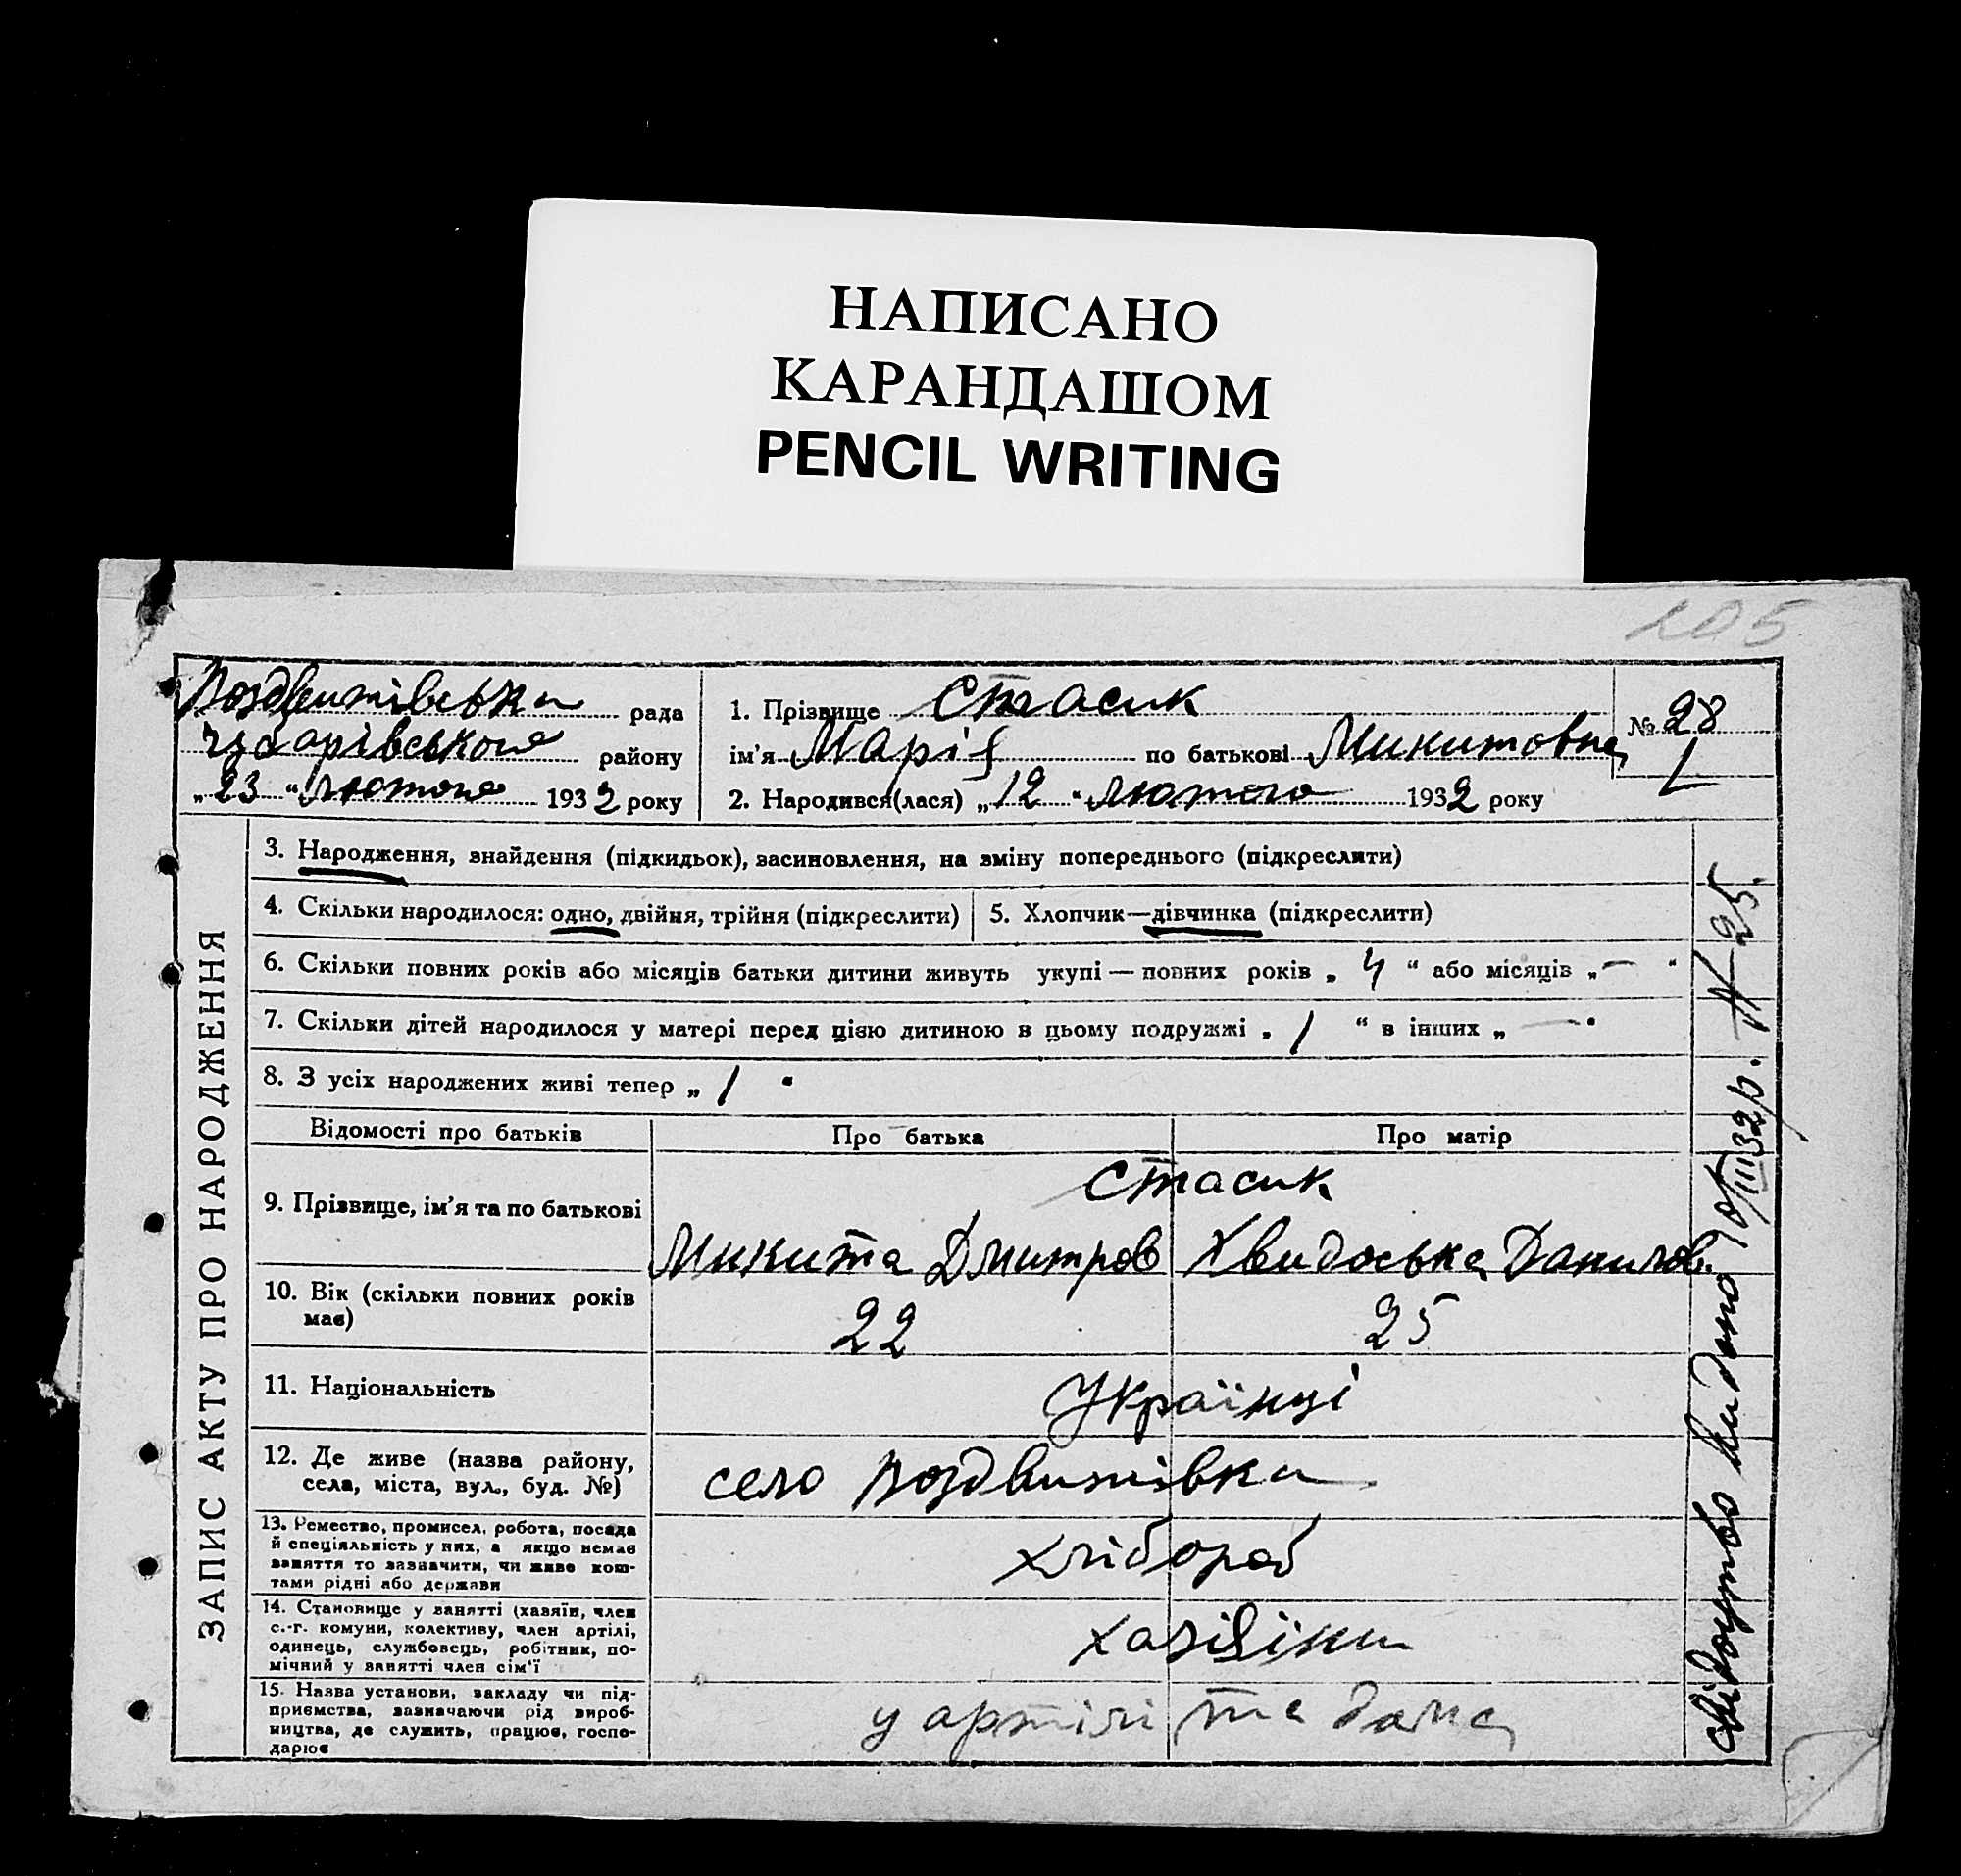 НАПИСАНО
КАРАНДАШОМ
PENCIL WRITING
205
Воздвижівська рада
району
„23“ лютого 1932 року
1. Прізвище Стасик
ім’я Марія по батькові Микитовна
2. Народився(лася) „12“ лютого 1932 року
№ 28
1
ЗАПИС АКТУ ПРО НАРОДЖЕННЯ
3. Народження, знайдення (підкидьок), засиновлення, на зміну попереднього (підкреслити)
4. Скільки народилося: одно, двійня, трійня (підкреслити)
5. Хлопчик—дівчинка (підкреслити)
6. Скільки повних років або місяців батьки дитини живуть укупі — повних років „ 4 “ або місяців „ — “
7. Скільки дітей народилося у матері перед цією дитиною в цьому подружжі „ 1 “ в інших „ — “
8. З усіх народжених живі тепер „ 1 “
Відомості про батьків
Про батька
Про матір
9. Прізвище, ім’я та по батькові
Стасик
Микита Дмитров
Хвидоська Данилов.
10. Вік (скільки повних років
має)
22
25
11. Національність
Українці
12. Де живе (назва району,
села, міста, вул., буд. №)
село Воздвижівка
13. Ремество, промисел, робота, посада
й спеціяльність у них, а якщо немає
заняття то зазначити, чи живе кош-
тами рідні або держави
хлібороб
14. Становище у занятті (хазяїн, член
с.-г. комуни, колективу, член артілі,
одинець, службовець, робітник, по-
мічний у занятті член сім’ї
15. Назва установи, закладу чи під-
приємства, зазначаючи рід вироб-
ництва, де служить, працює, госпо-
дарює
у артілі та дома
свідоцтво видано 10/III 32 р. № 25.